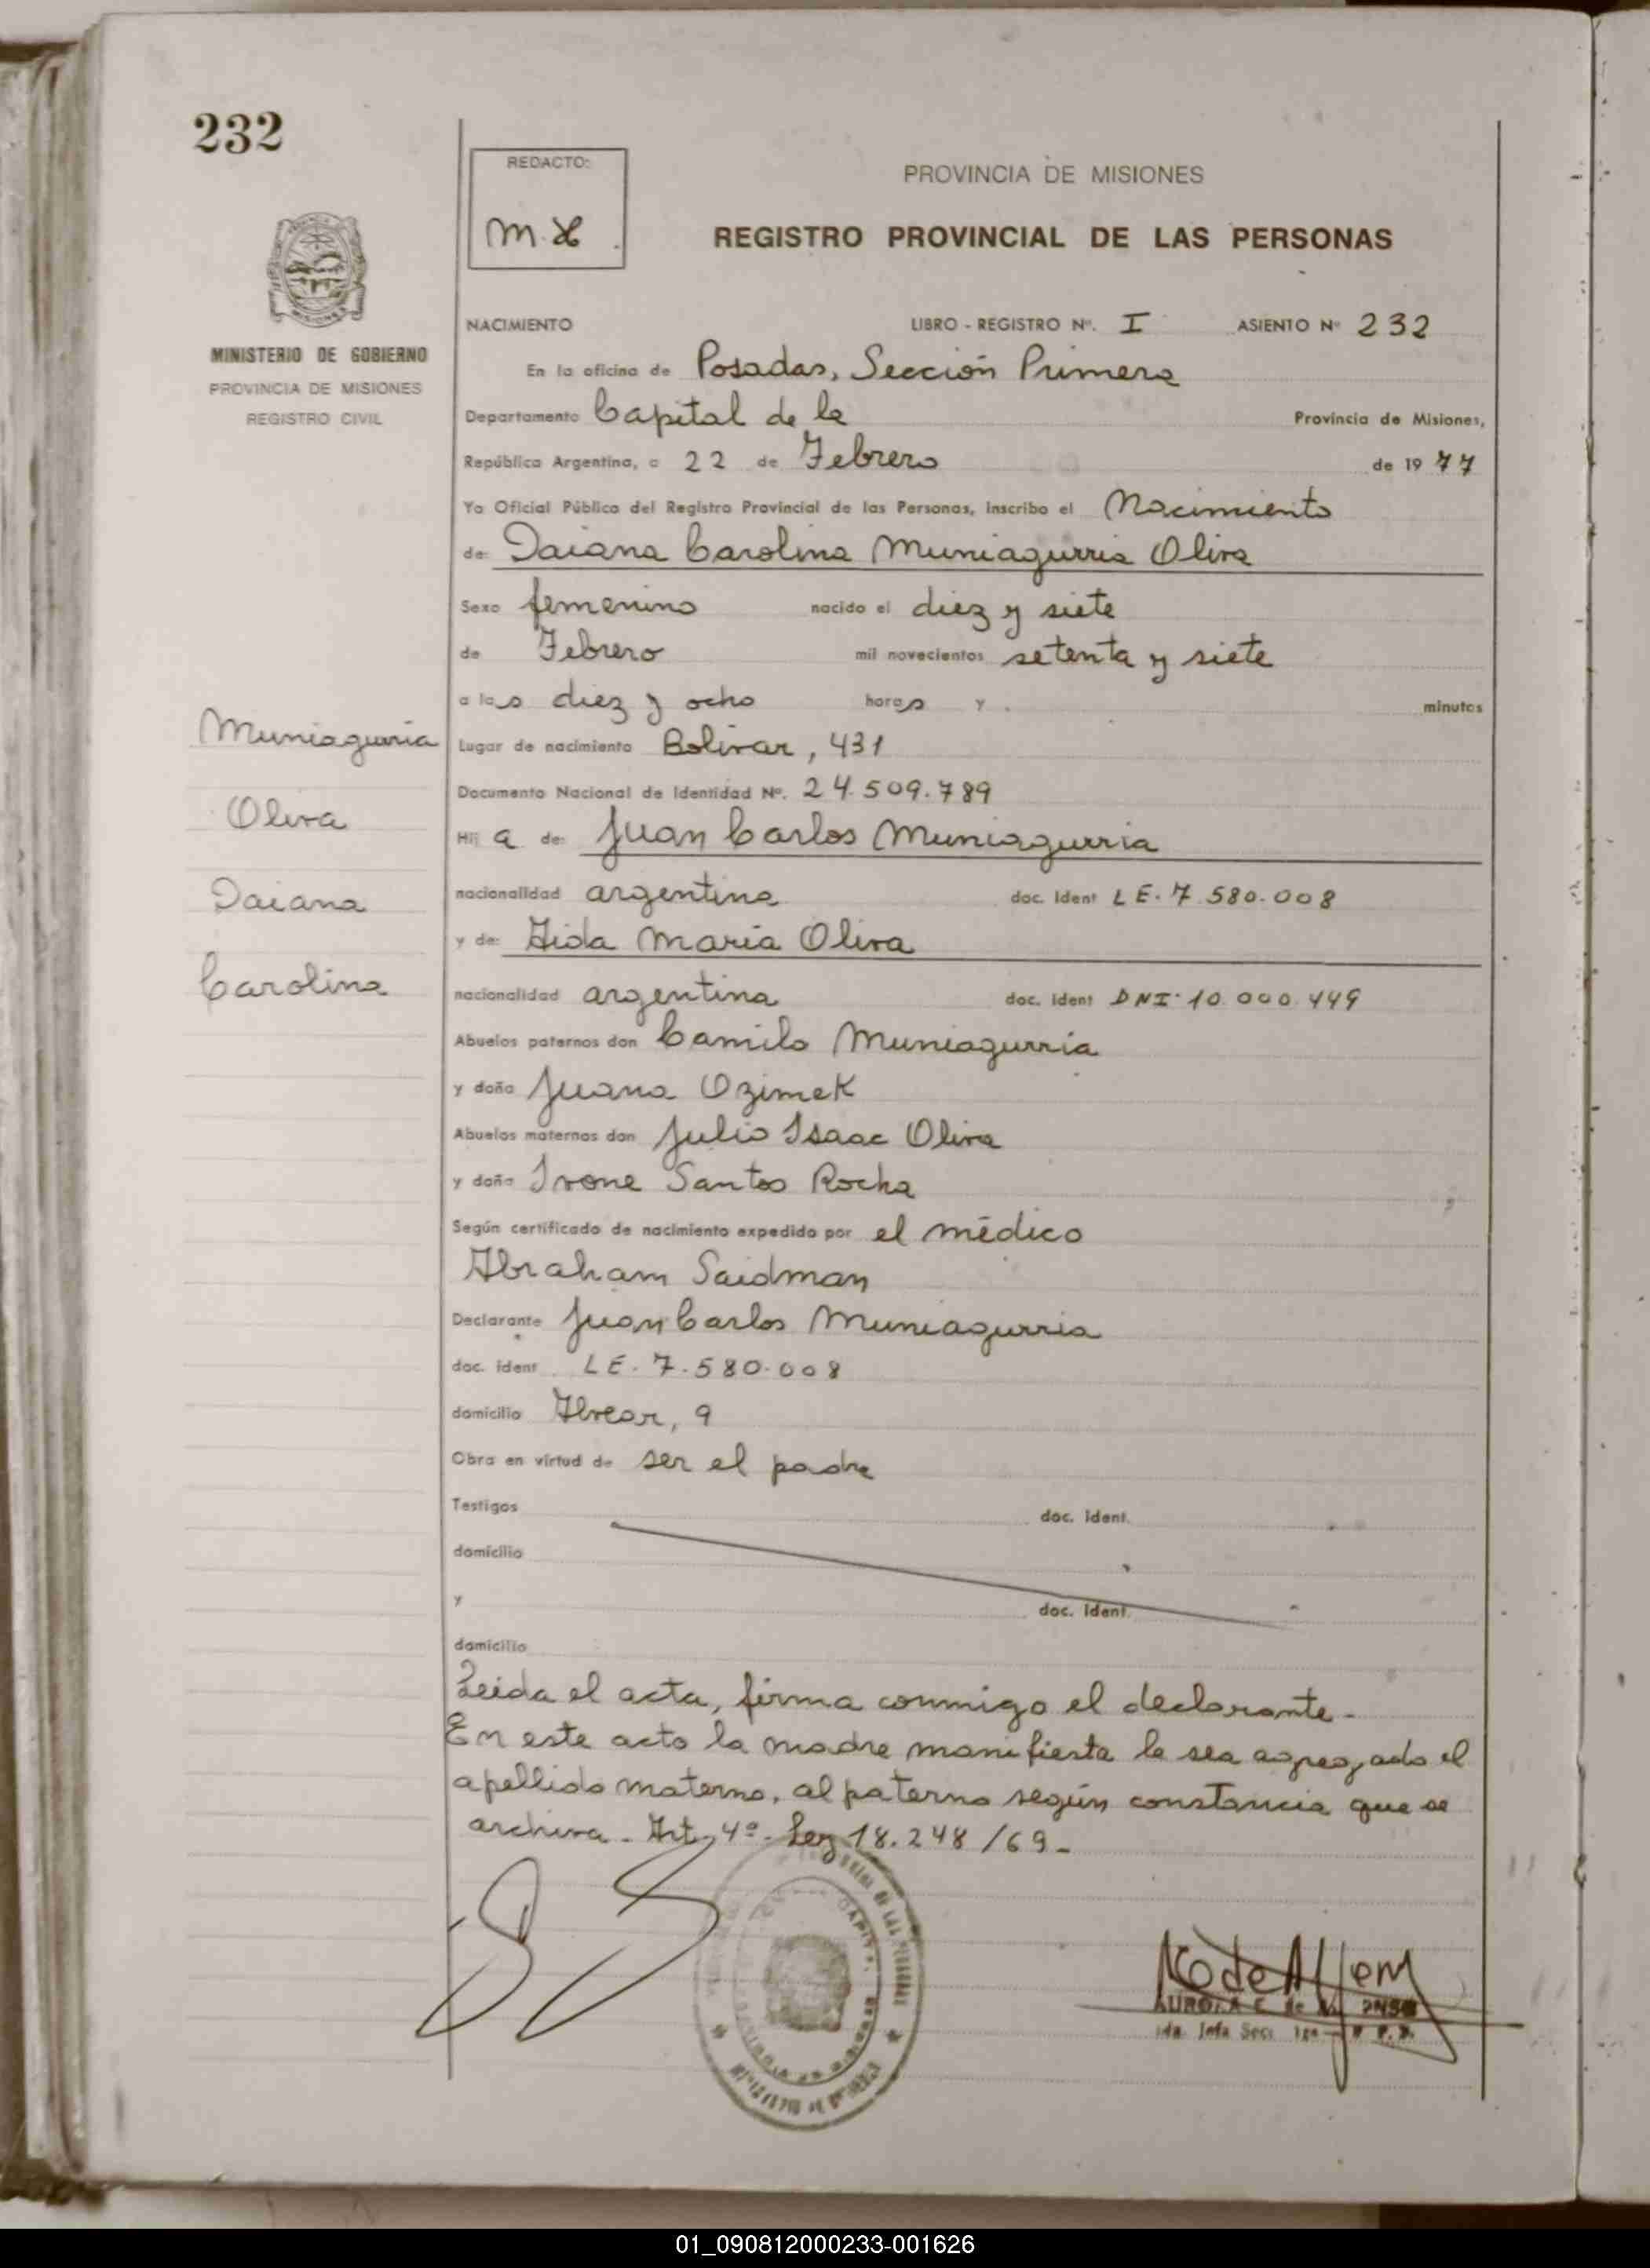 232
REDACTO:
PROVINCIA DE MISIONES
REGISTRO PROVINCIAL DE LAS PERSONAS
MINISTERIO DE GOBIERNO
PROVINCIA DE MISIONES
REGISTRO CIVIL
NACIMIENTO LIBRO - REGISTRO Nº. I ASIENTO Nº 232
En la oficina de Posadas, Sección Primera
Departamento Capital de la Provincia de Misiones,
República Argentina, a 22 de Febrero de 1977
Yo Oficial Público del Registro Provincial de las Personas, inscribo el Nacimiento
de: Daiana Carolina Muniagurria Oliva
Sexo femenino nacido el diez y siete
de Febrero mil novecientos setenta y siete
a las diez y ocho horas y minutos
Muniagurria
Lugar de nacimiento Bolivar, 431
Documento Nacional de Identidad Nº. 24.509.789
Oliva
Hij a de: Juan Carlos Muniagurria
Daiana
nacionalidad argentina doc. Ident LE. 7.580.008
y de: Aida Maria Oliva
Carolina
nacionalidad argentina doc. Ident DNI. 10.000.449
Abuelos paternos don Camilo Muniagurria
y doña Juana Ozimek
Abuelos maternos don Julio Isaac Oliva
y doña Ivone Santos Rocha
Según certificado de nacimiento expedido por el médico
Abraham Saidman
Declarante Juan Carlos Muniagurria
doc. ident LE. 7.580.008
domicilio Alvear, 9
Obra en virtud de ser el padre
Testigos doc. ident.
domicilio
y doc. ident.
domicilio
Leida el acta, firma conmigo el declarante.-
En este acto la madre manifiesta le sea agregado el
apellido materno, al paterno según constancia que se
archiva. Art. 4º. Ley 18.248/69-
01_090812000233-001626